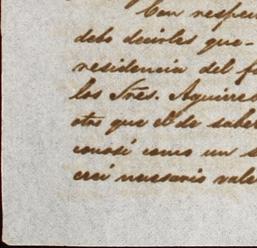 Con respec
debo decirles que-
residencia del f
los Sres. Aguirre
otro que el de saber
conocí como un s
creí necesario vale